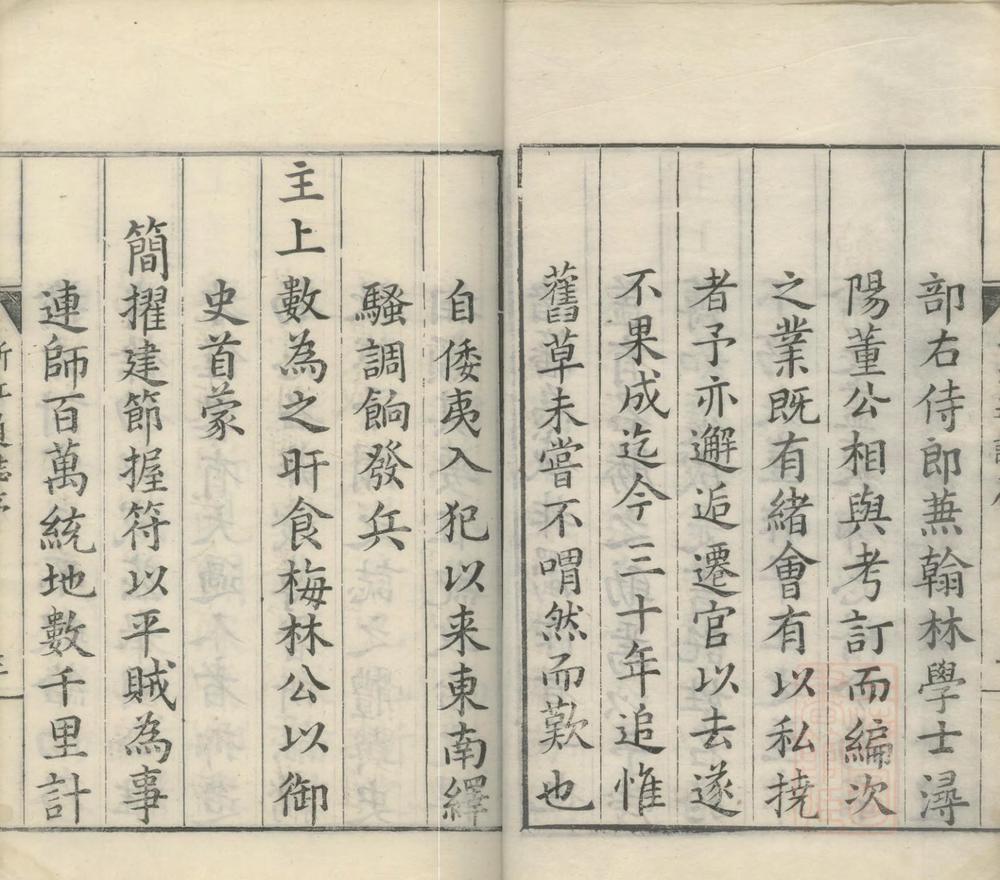 部右侍郎蕪翰林學士潯
陽董公相與考訂而編次
之業既有緒會有以私撓
者予亦邂逅遷官以去遂
不果成迄今三十年追惟
舊草未嘗不喟然而歎也
自倭夷入犯以来東南繹
騷調餉發兵
主上數為之旰食梅林公以御
史首蒙
簡擢建節握符以平賊為事
連師百萬統地數千里計